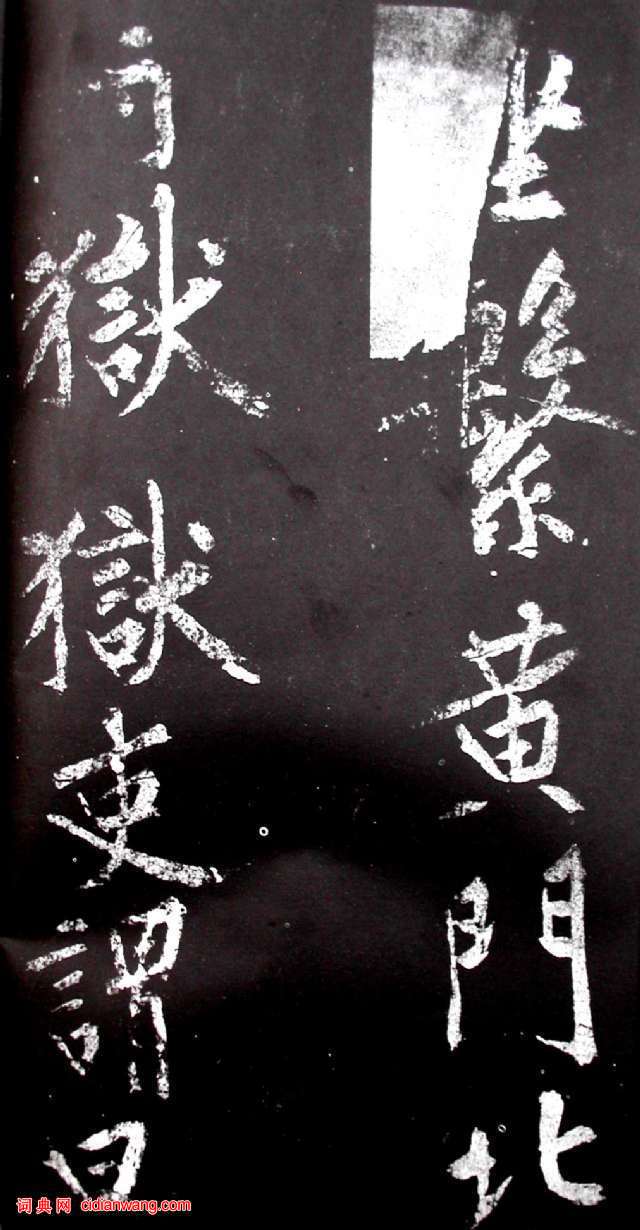 坐繫黃門北
寺獄獄吏謂曰
词典网 cidianwang.com